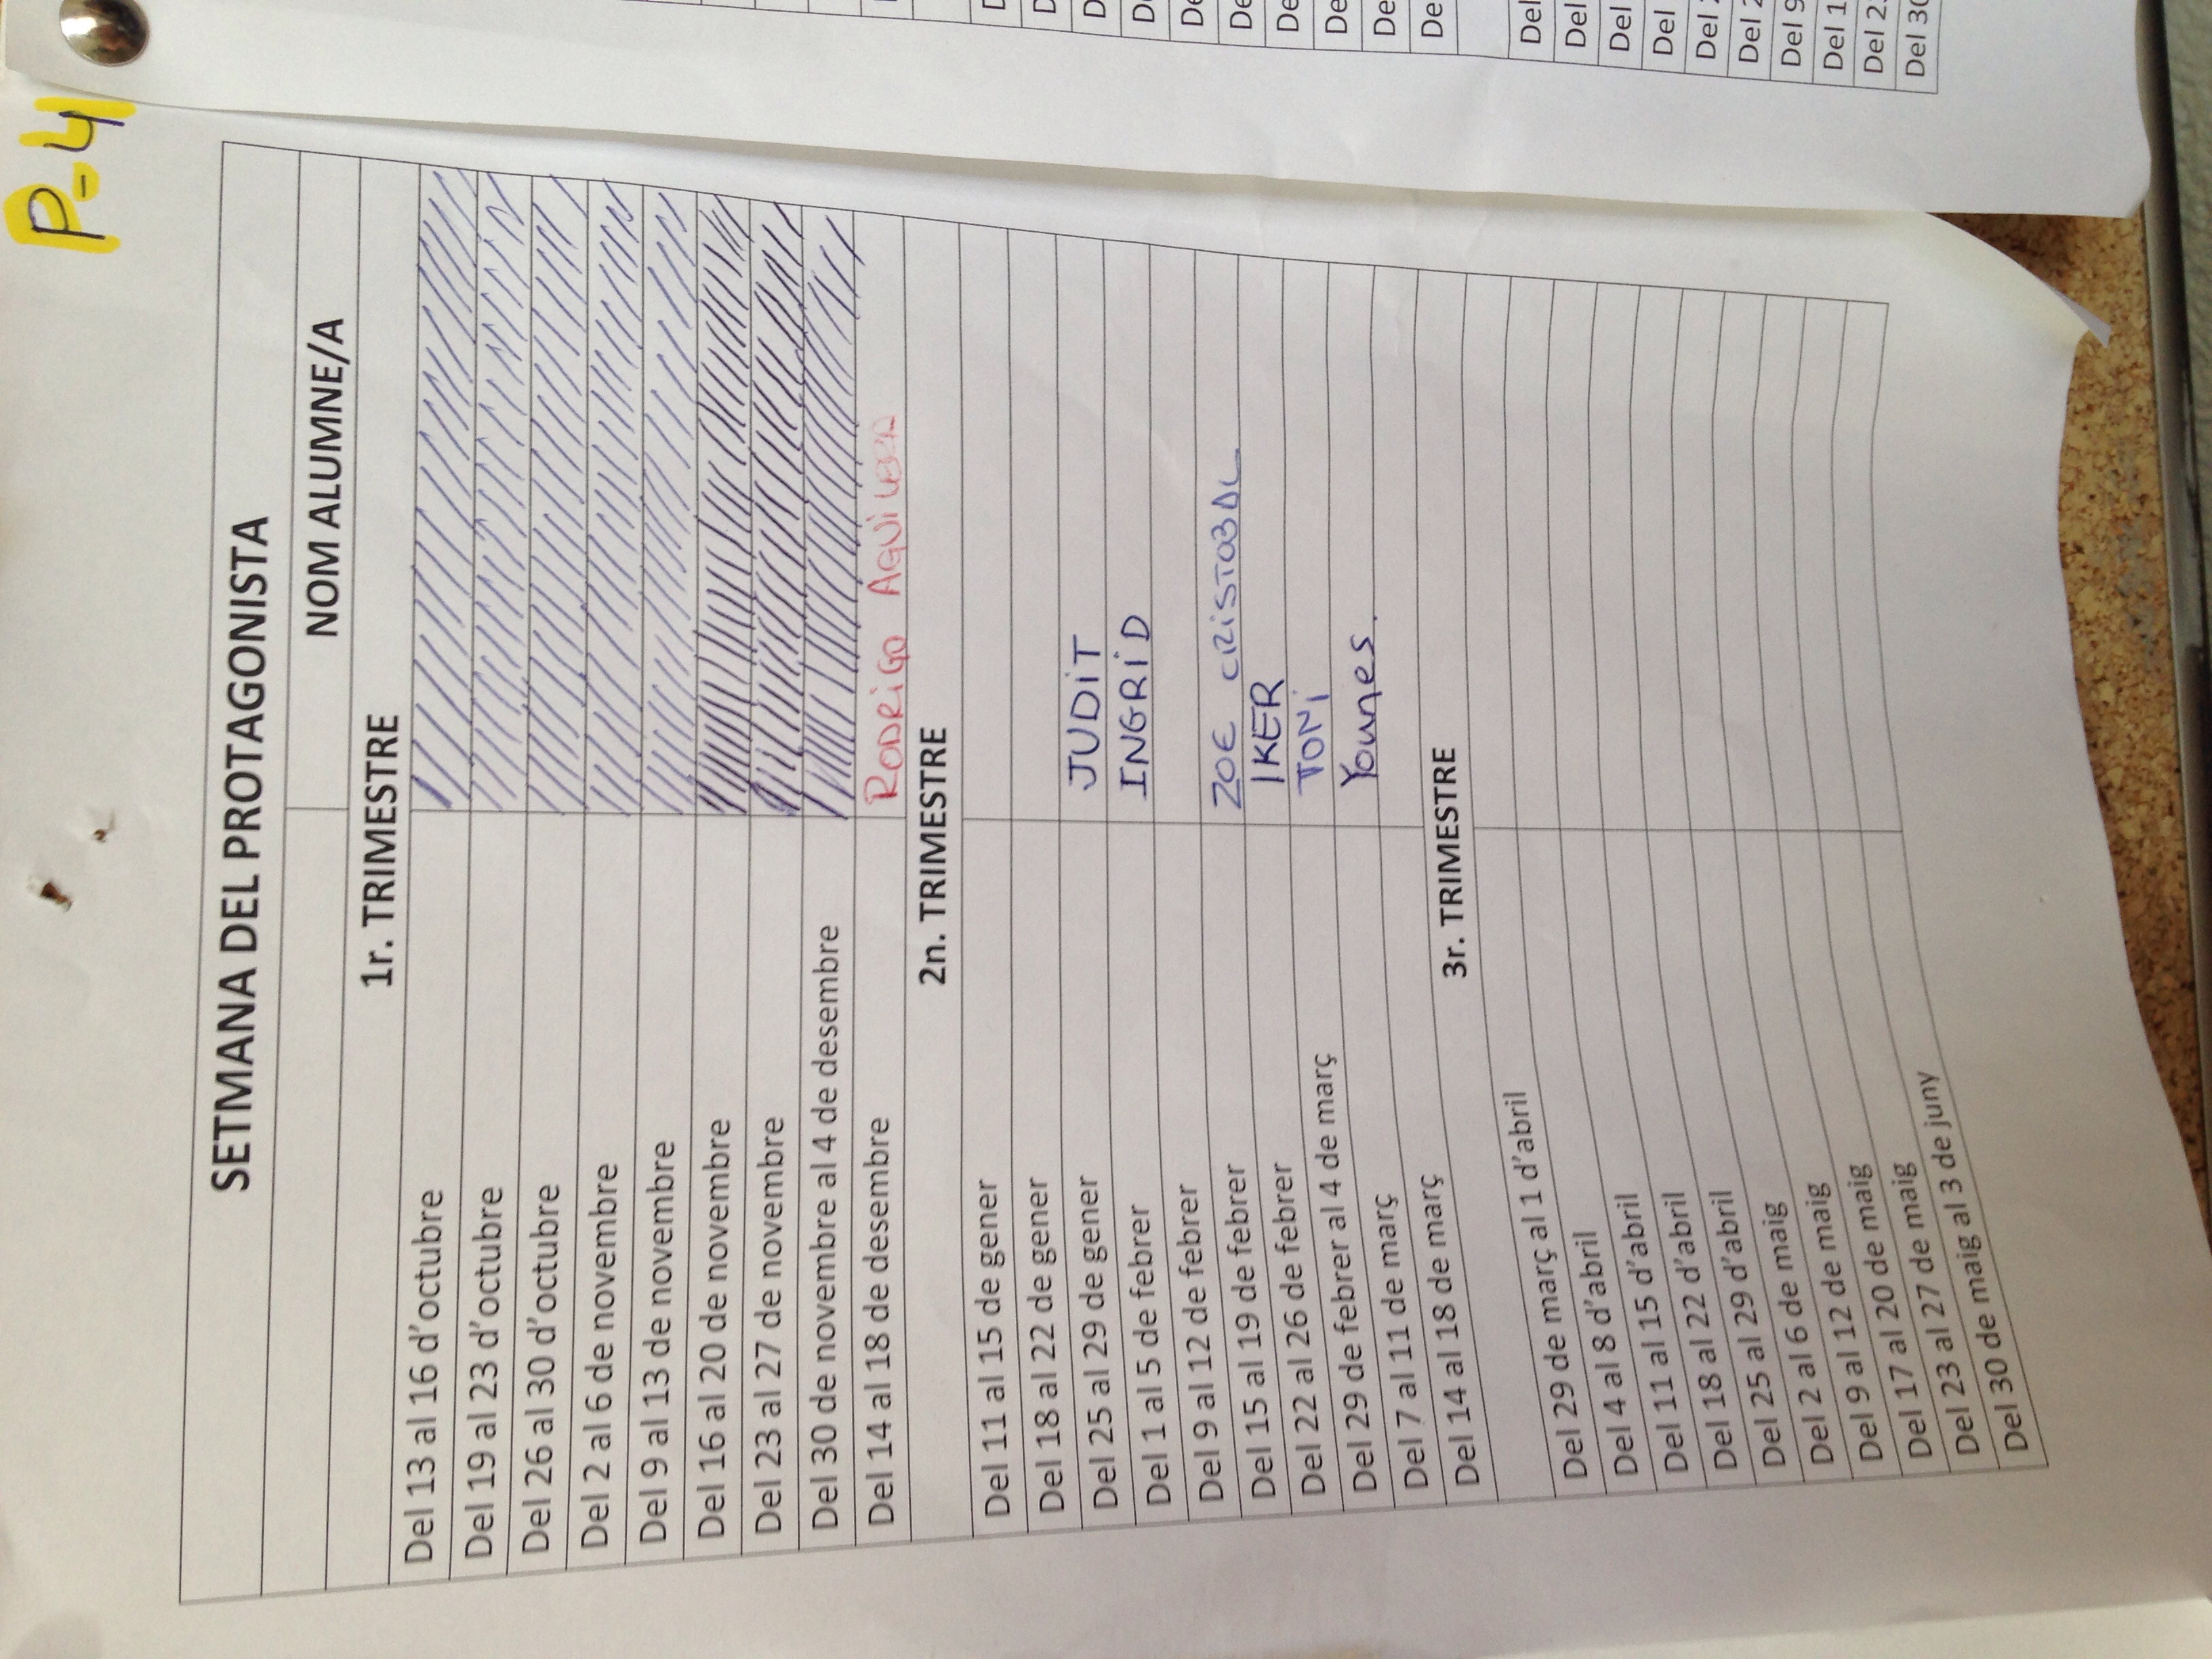 P-4
SETMANA DEL PROTAGONISTA
NOM ALUMNE/A
1r. TRIMESTRE
Del 13 al 16 d'octubre
Del 19 al 23 d'octubre
Del 26 al 30 d'octubre
Del 2 al 6 de novembre
Del 9 al 13 de novembre
Del 16 al 20 de novembre
Del 23 al 27 de novembre
Del 30 de novembre al 4 de desembre
Del 14 al 18 de desembre RODRIGO AGUILERA
2n. TRIMESTRE
Del 11 al 15 de gener
Del 18 al 22 de gener
Del 25 al 29 de gener JUDIT
Del 1 al 5 de febrer INGRID
Del 9 al 12 de febrer
Del 15 al 19 de febrer ZOE CRISTOBAL
Del 22 al 26 de febrer IKER
Del 29 de febrer al 4 de març TONI
Del 7 al 11 de març Younes.
Del 14 al 18 de març
3r. TRIMESTRE
Del 29 de març al 1 d'abril
Del 4 al 8 d'abril
Del 11 al 15 d'abril
Del 18 al 22 d'abril
Del 25 al 29 d'abril
Del 2 al 6 de maig
Del 9 al 12 de maig
Del 17 al 20 de maig
Del 23 al 27 de maig
Del 30 de maig al 3 de juny